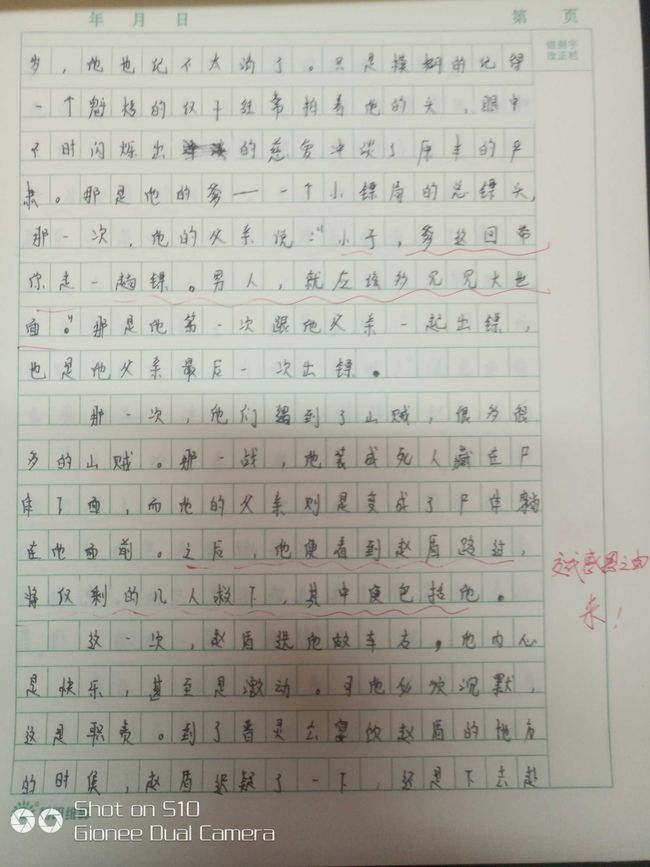 年 月 日
第 页
错别字
改正栏
岁，他也记不太清了。只是模糊的记得
一个魁梧的汉子经常拍着他的头，眼中
不时闪烁出的慈爱冲淡了原本的严
肃。那是他的爹——一个小镖局的总镖头，
那一次，他的父亲说："小子，爹这回带
你走一趟镖。男人，就应该多见见大世
面"。那是他第一次跟他父亲一起出镖，
也是他父亲最后一次出镖。
那一次，他们遇到了山贼，很多很
多的山贼。那一战，他装成死人藏在尸
体下面，而他的父亲则是变成了尸体躺
在他面前。之后，他便看到赵盾路过，
将仅剩的几人救下，其中便包括他。
交代感恩之由
来！
这一次，赵盾选他做车右，他内心
是快乐，甚至是激动。可他必须沉默，
这是职责。到了晋灵公宴饮赵盾的地方
的时候，赵盾迟疑了一下，还是下去赴
Shot on S10
Gionee Dual Camera